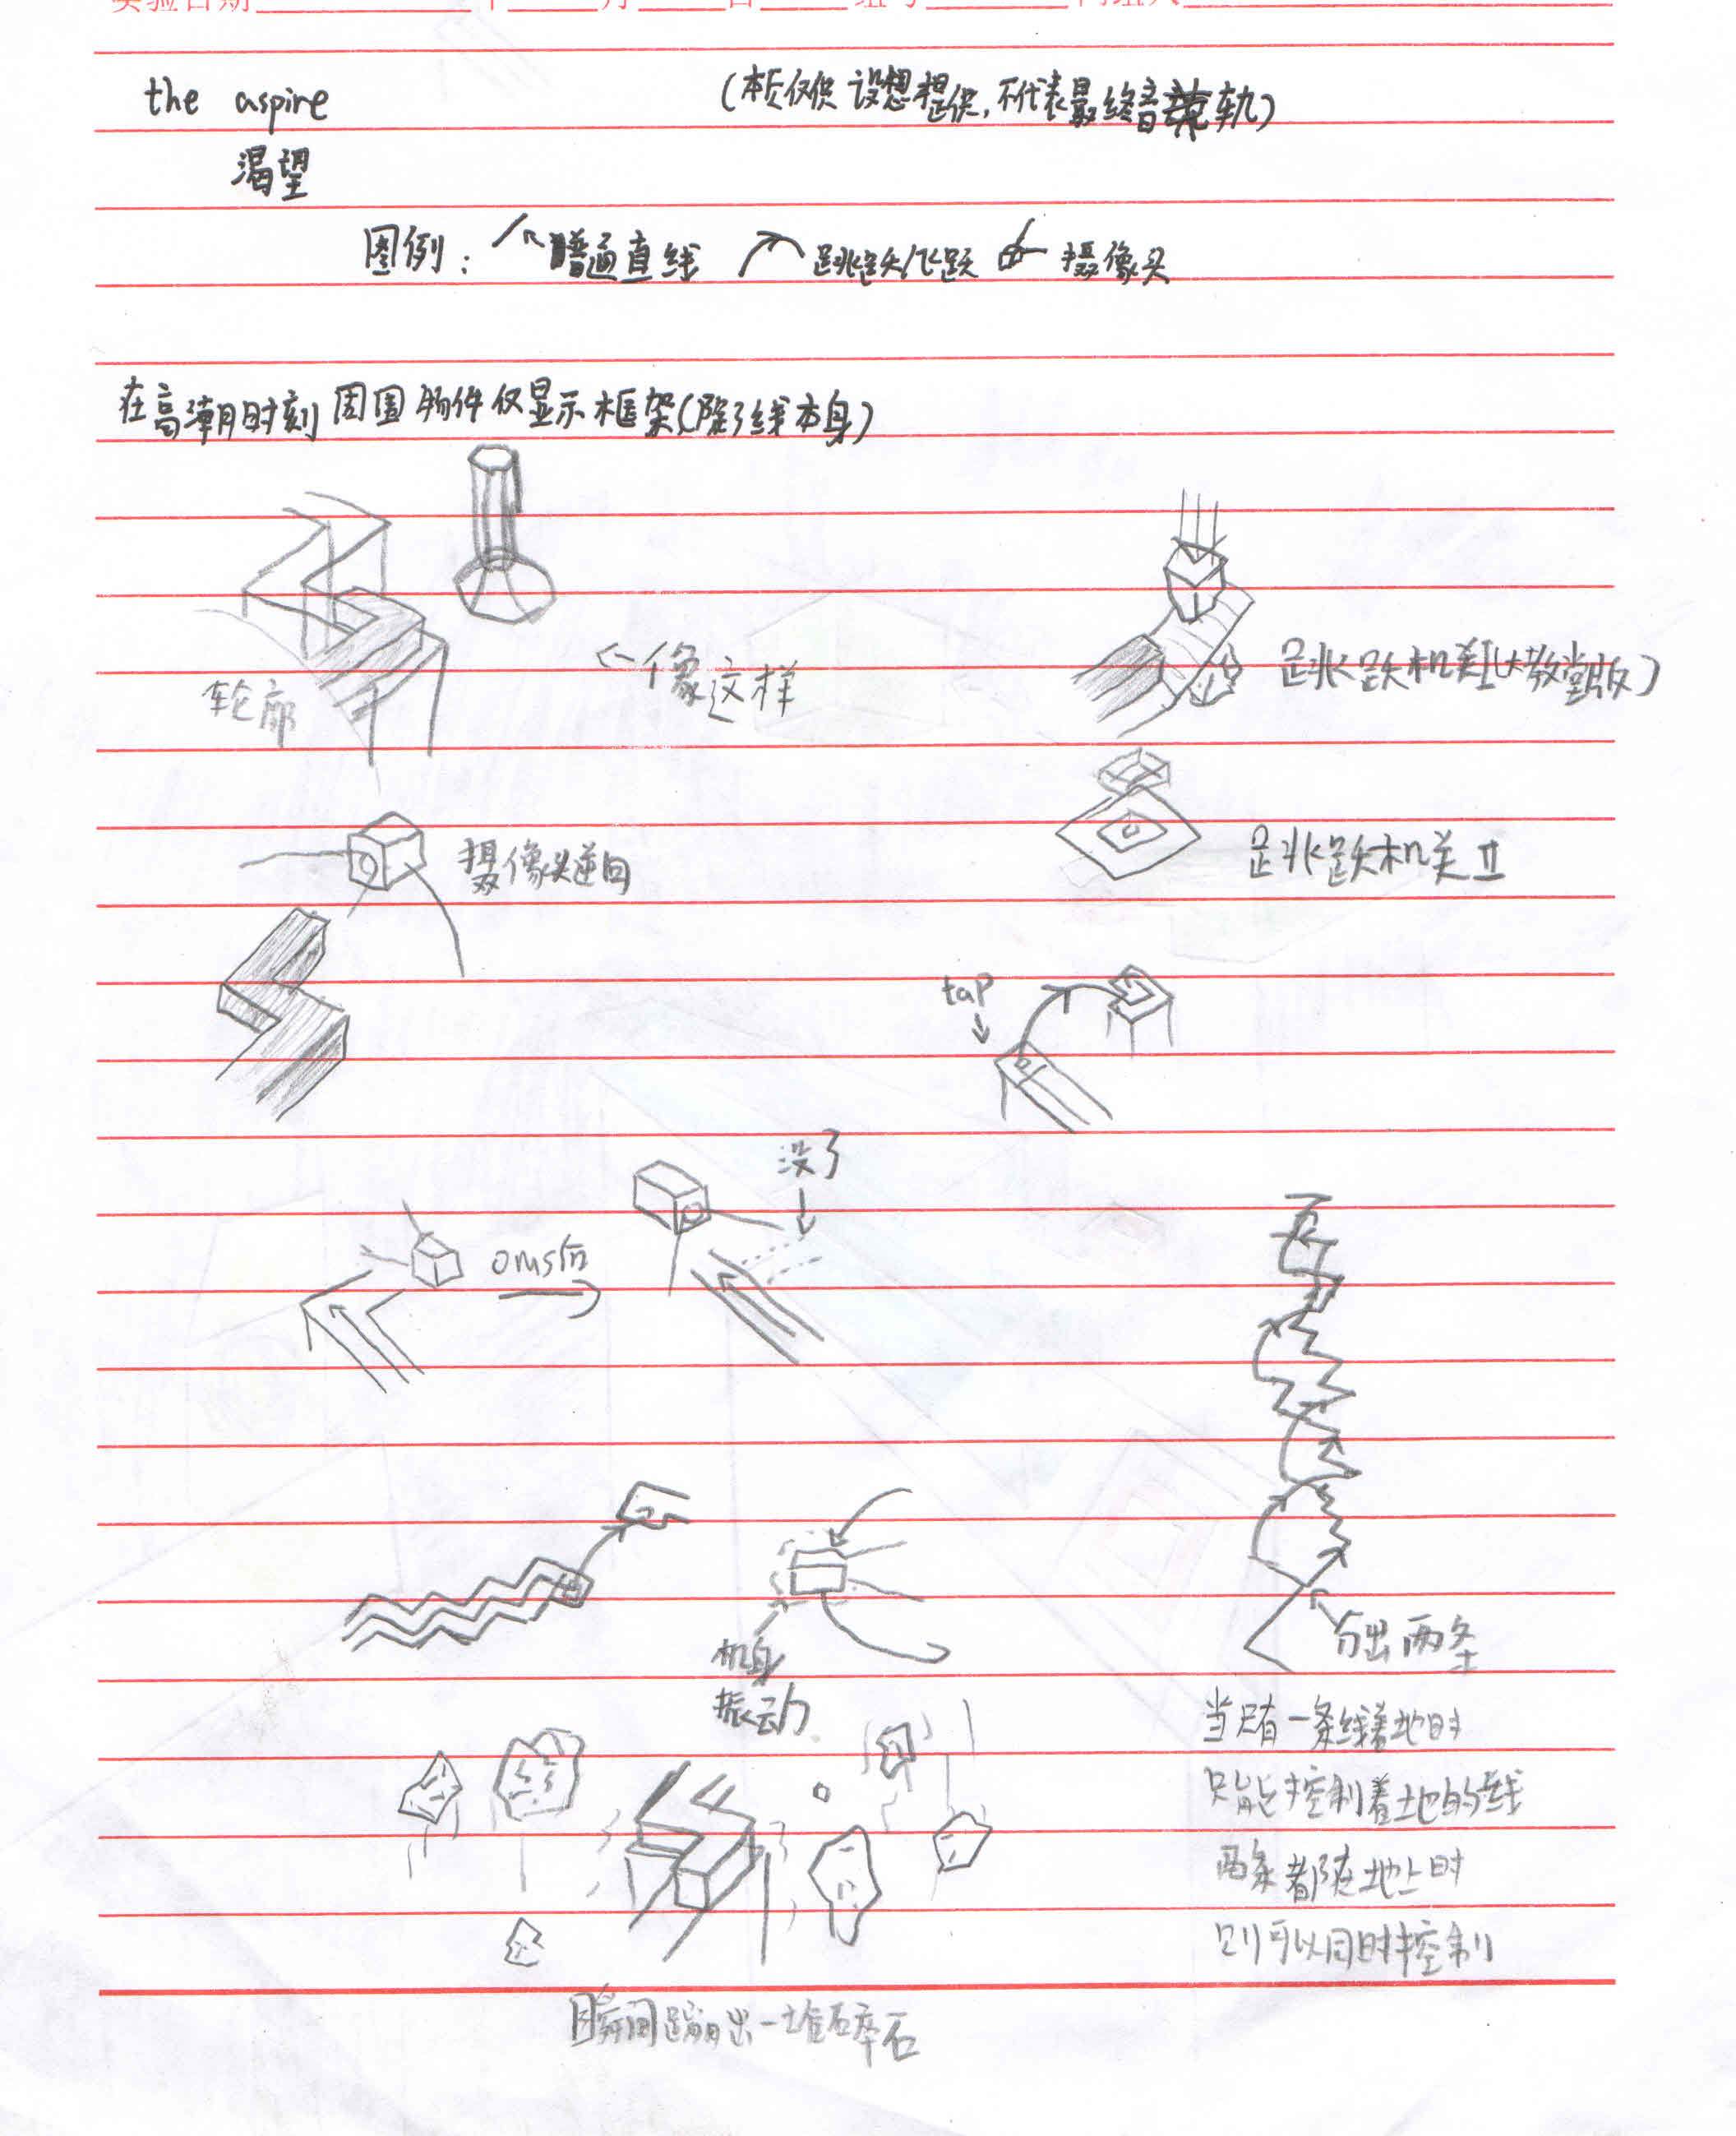 实验日期 年 月 日 组号 同组人
the aspire
(本页仅供设想提供,不代表最终音轨)
渴望
图例: 普通直线 跳跃/飞跃 摄像头
在高潮时刻周围物件仅显示框架(除了线本身)
轮廓
←像这样
跳跃机关I(大教堂版)
摄像头逆向
跳跃机关II
tap
没了
0ms后
分出两条
机身
振动
当只有一条线着地时
只能控制着地的线
两条都在地上时
则可以同时控制
瞬间蹦出一堆碎石